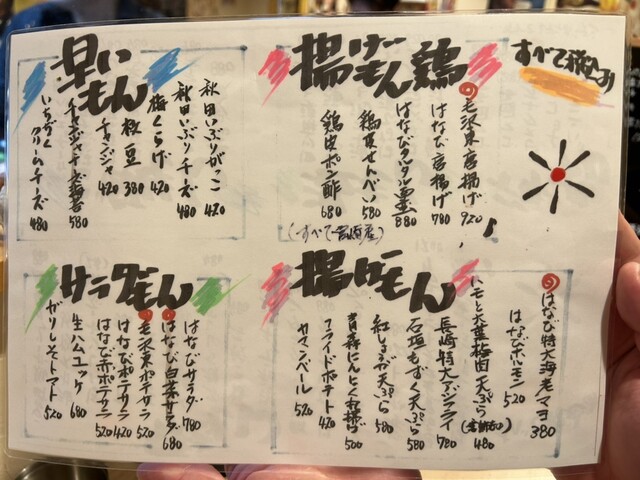 すべて税込み
揚げもん鶏
毛沢東唐揚げ 920
はなび唐揚げ 780
はなびタルタル 880
鶏皮せんべい 580
鶏皮ポン酢 680
(すべて宮崎産)
早いもん
秋田いぶりがっこ 420
秋田いぶりチーズ 480
梅くらげ 420
枝豆 380
チャンジャ 420
チャンジャチーズ海苔 580
いちぢくクリームチーズ 480
揚げもん
はなび特大海老マヨ 380
はなびホルモン 520
ハモと大葉梅肉天ぷら 480
長崎特大アジフライ 780
石垣もずく天ぷら 580
紅しょうが天ぷら 580
青森にんにく丸揚げ 500
フライドポテト 420
カマンベール 520
サラダもん
はなびサラダ 780
はなび白菜サラダ 680
毛沢東ポテサラ 520
はなびポテサラ 420
はなび赤ポテサラ 520
生ハムユッケ 680
ガリしそトマト 520